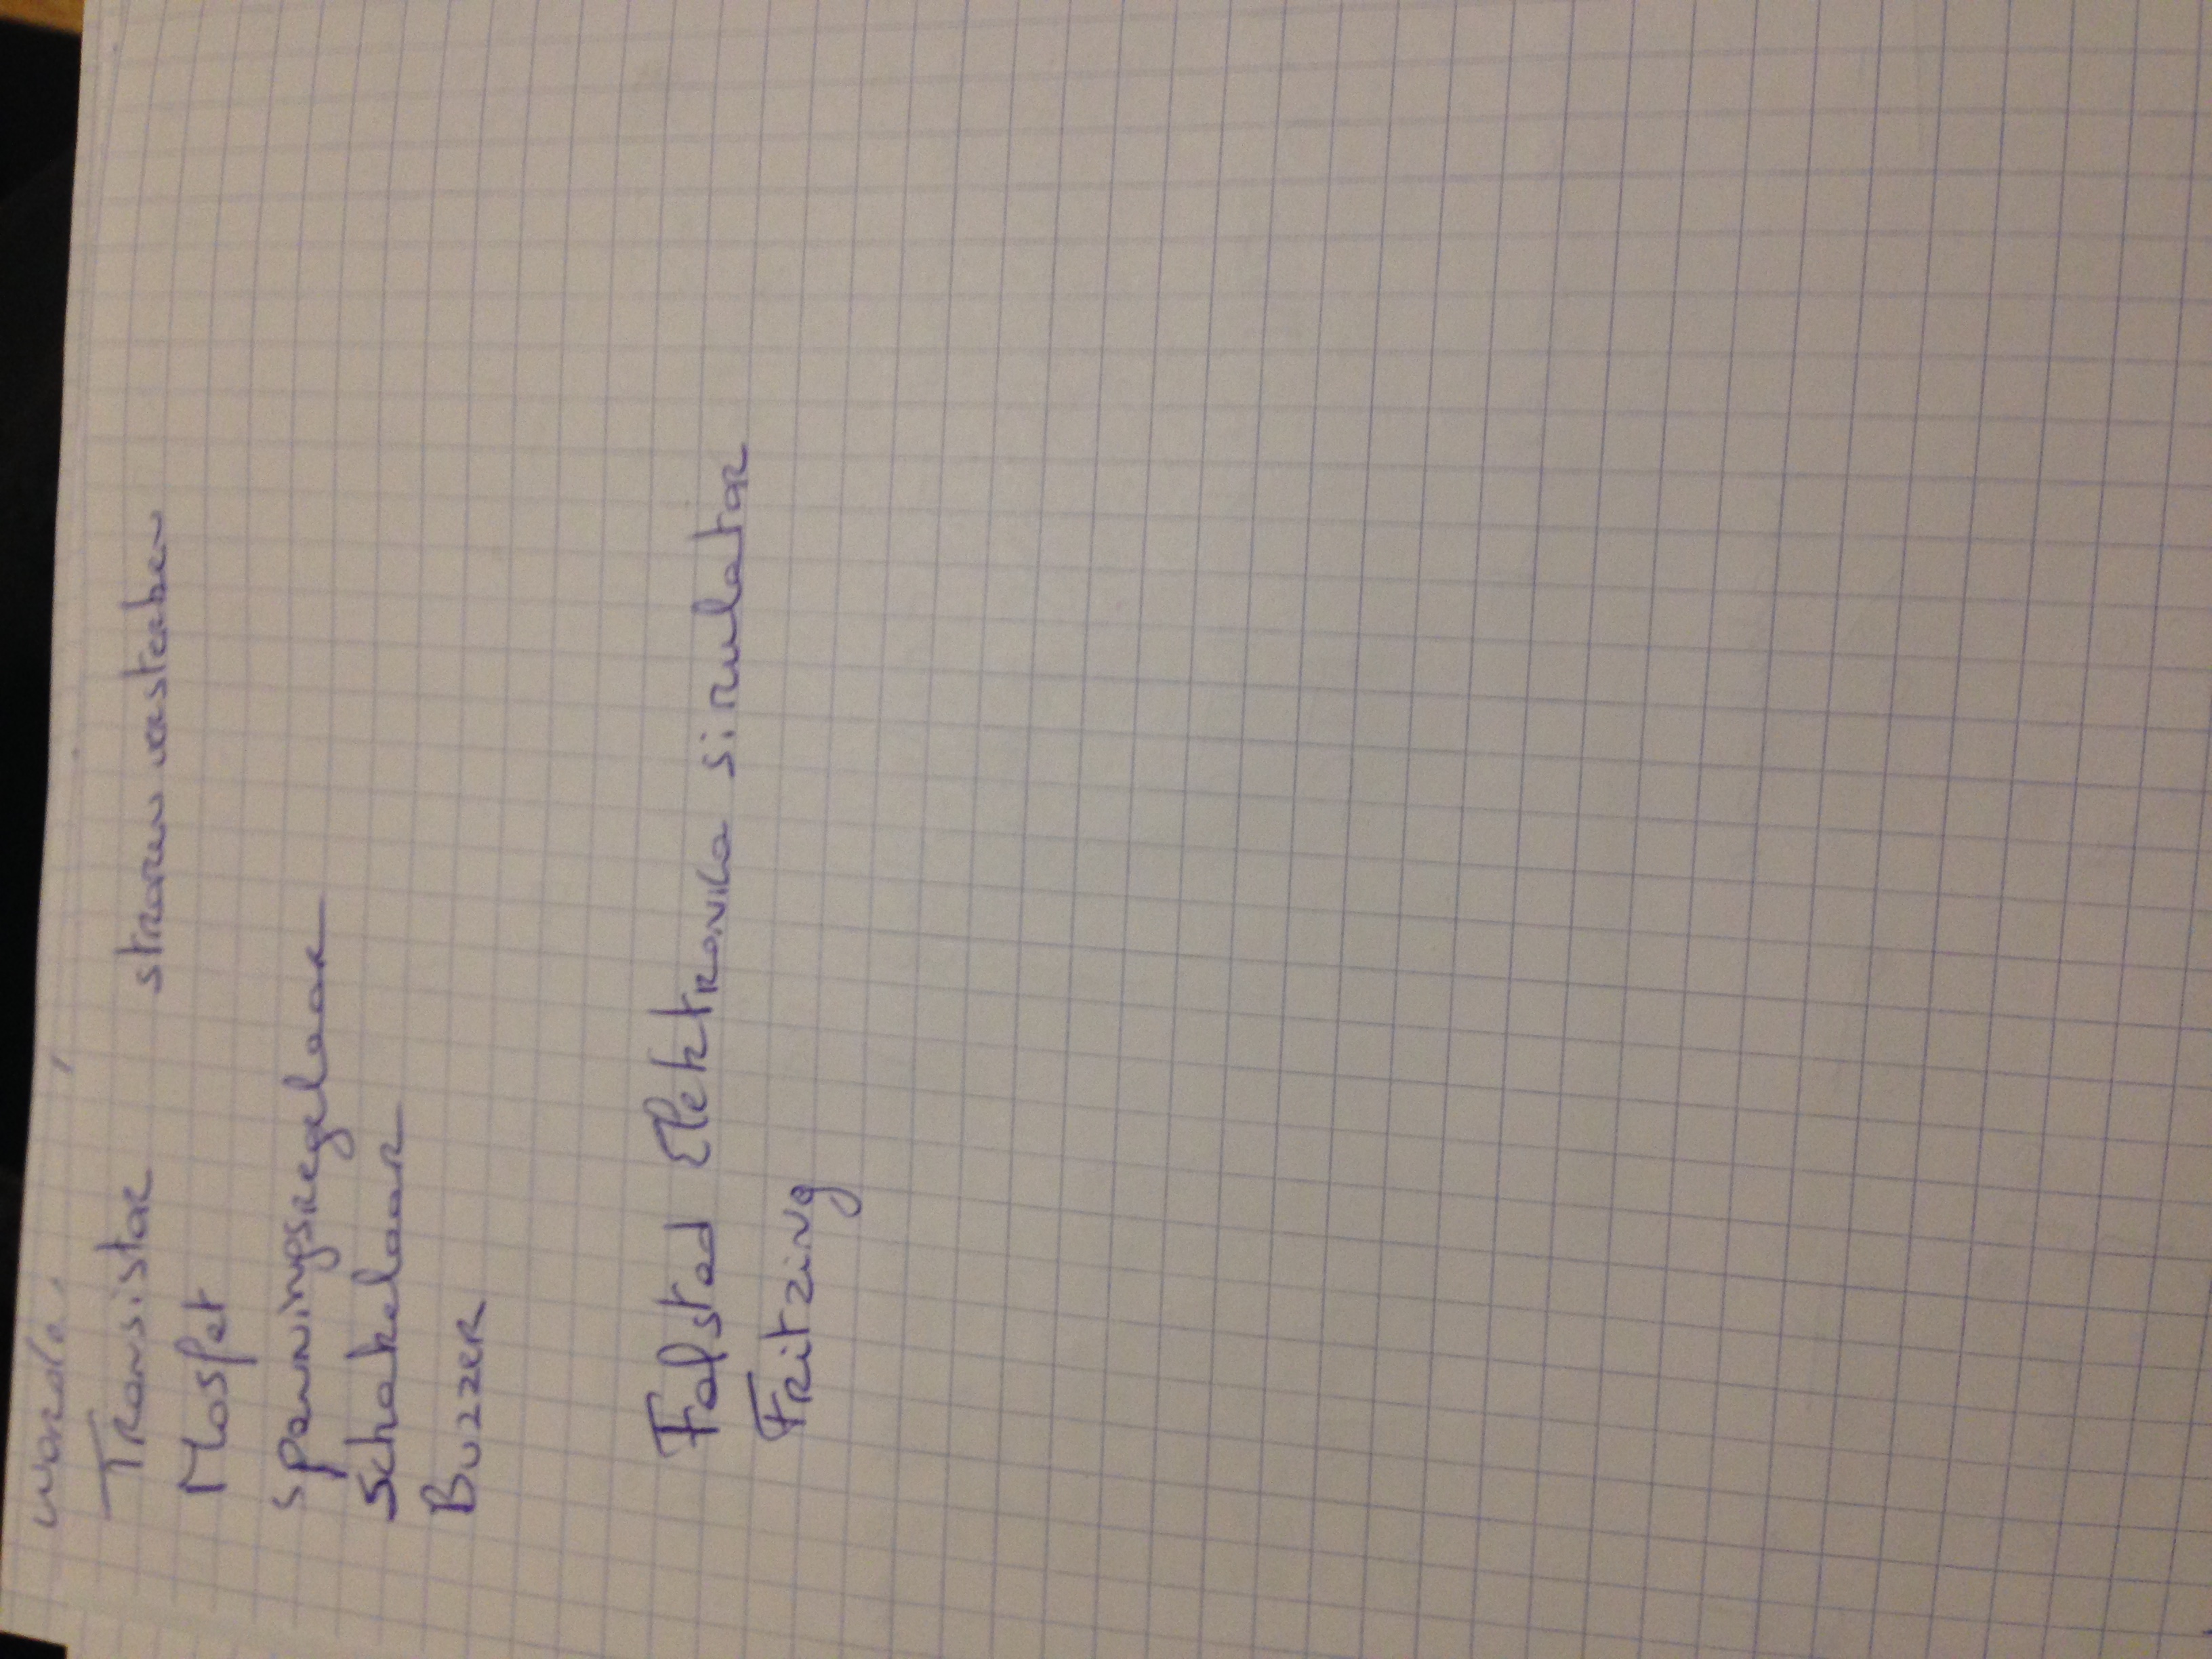 worde.
Transistor stroom versterken
Mosfet
spanningsregelaar
Schakelaar
Buzzer
Falstad Elektronica simulator
Fritzing